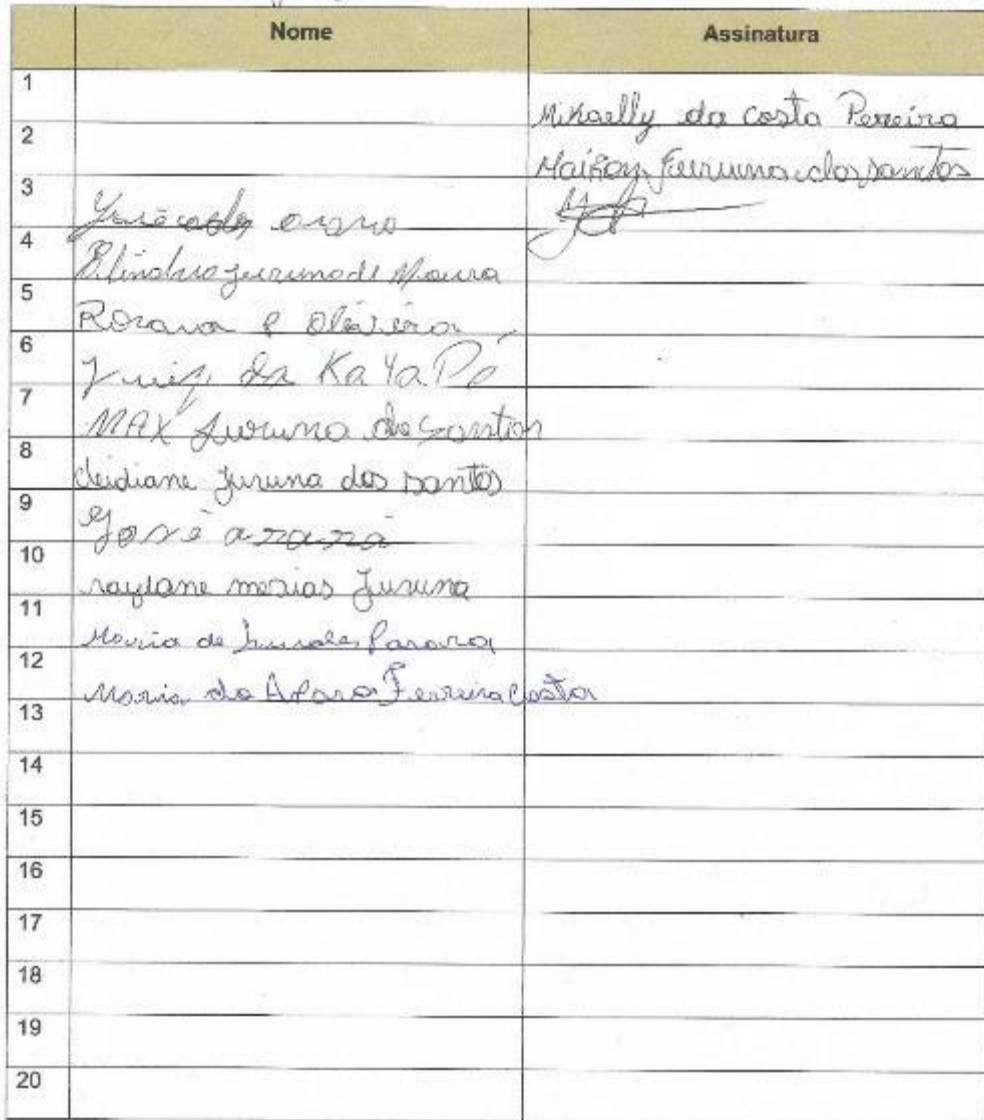 Nome Assinatura
1
Mikaelly da Costa Pereira
2
Maikon Juruna dos santos
3
4
Juruna de Moura
5
Rosana P Oliveira
6
da KaYaPó
7
MAX Juruna dos Santos
8
cleidiane Juruna dos santos
9
José arara
10
raylane mesias Juruna
11
Maria de
12
Maria do Ferreira Costa
13
14
15
16
17
18
19
20